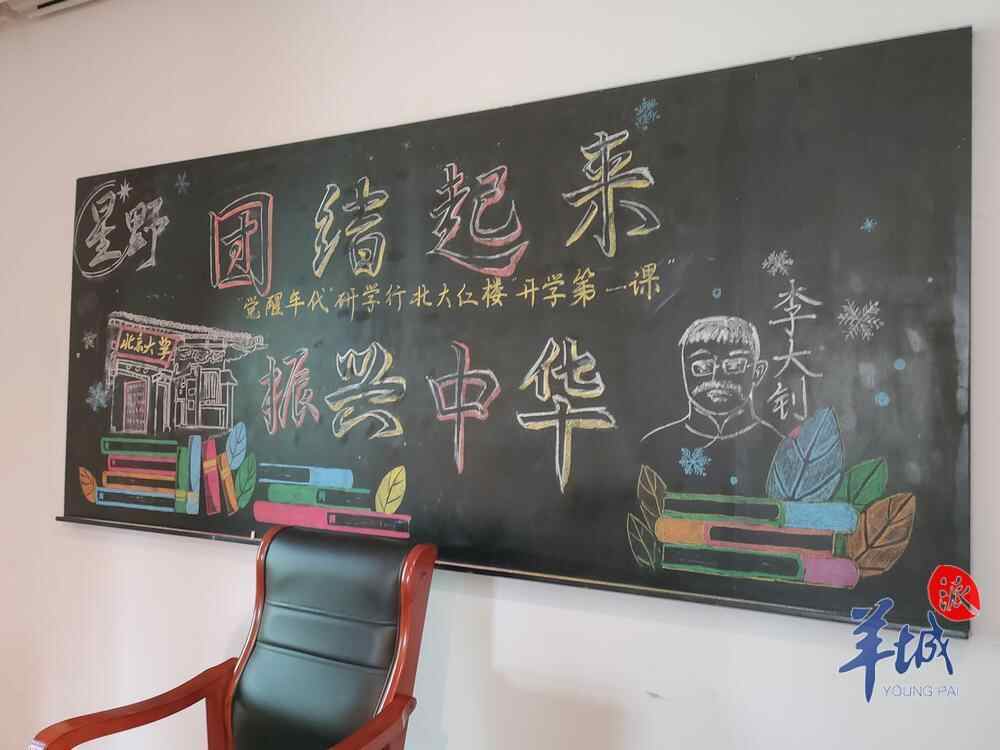 星野
团结起来
"觉醒年代"研学行 北大红楼"开学第一课"
北京大学
振兴中华
李大钊
羊城派
YOUNG PAI